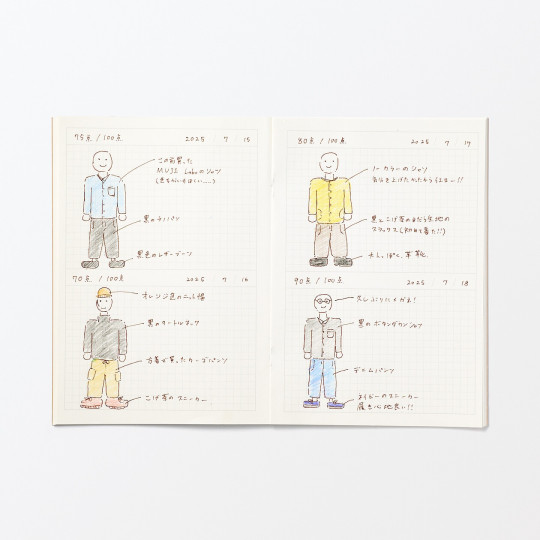 75点 / 100点 2025 7 15
この前買った
MUJI Laboのシャツ
(色ちがいもほしい……)
黒のチノパン
黒色のレザーブーツ
70点 / 100点 2025 7 16
オレンジ色のニット帽
黒のタートルネック
古着で買ったカーゴパンツ
こげ茶のスニーカー
80点 / 100点 2025 7 17
ノーカラーのシャツ
黒とこげ茶のまだら生地の
スラックス(初めて着た!!)
大人っぽく、革靴
90点 / 100点 2025 7 18
久しぶりにメガネ!
黒のボタンダウンシャツ
デニムパンツ
ネイビーのスニーカー
履き心地良い!!